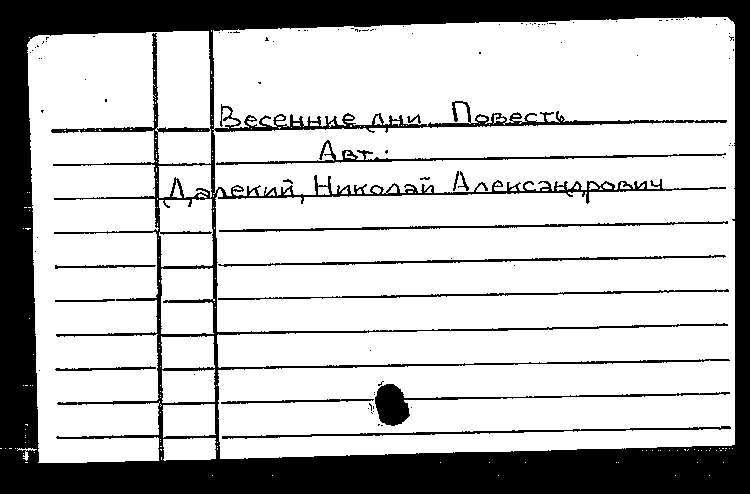 Весенние дни. Повесть
Авт.:
Далекий, Николай Александрович